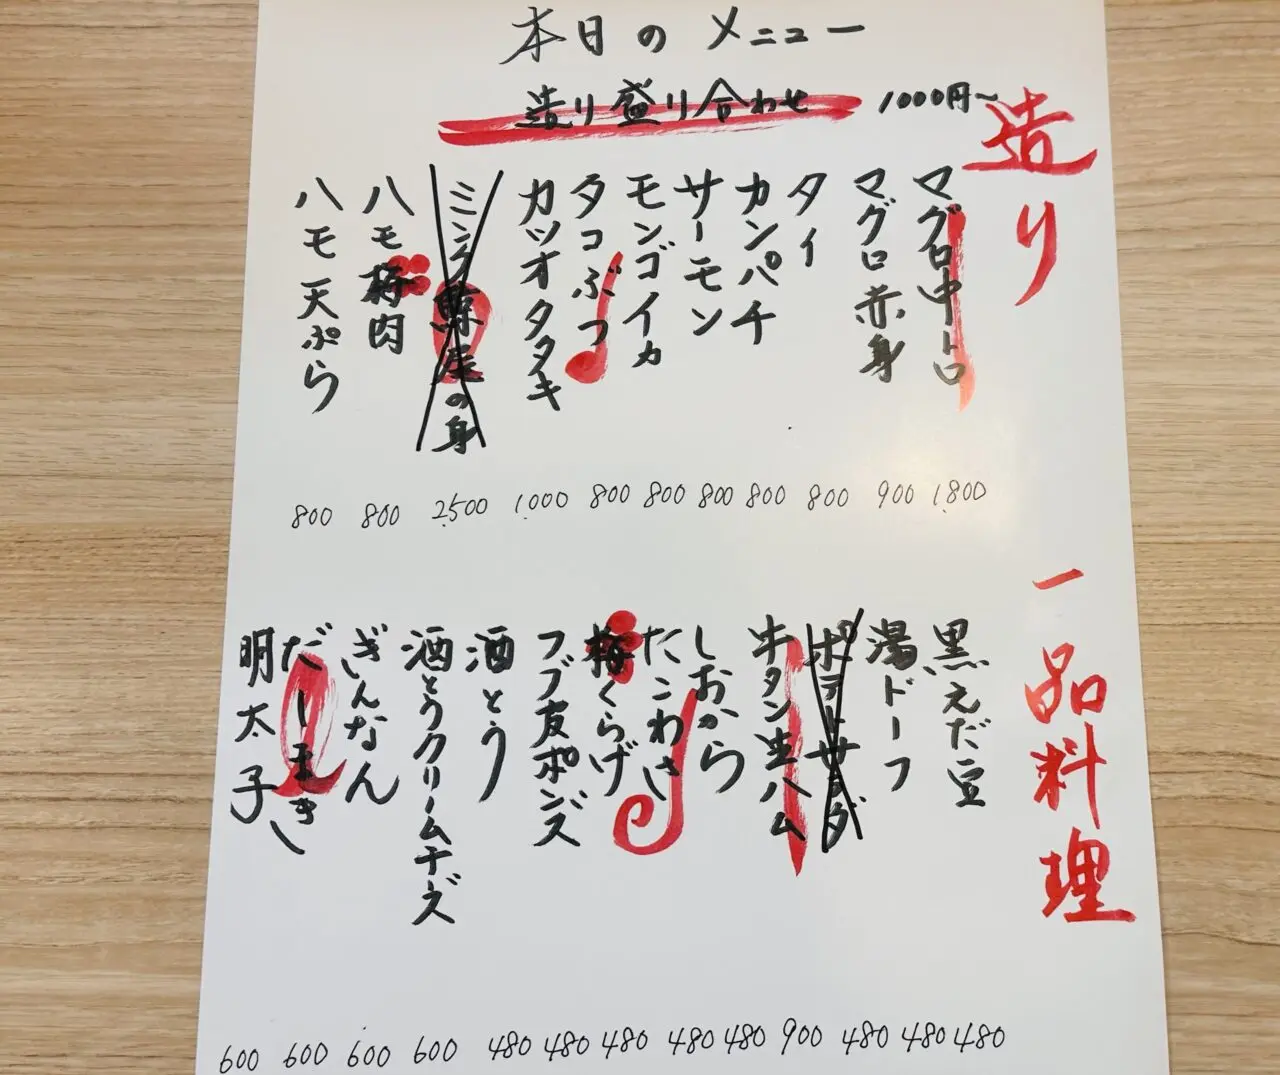 本日のメニュー
造り盛り合わせ 1000円~
造り
マグロ中トロ
マグロ赤身
タイ
カンパチ
サーモン
モンゴイカ
タコぶつ
カツオタタキ
ミンク鯨尾の身
ハモ梅肉
ハモ天ぷら
1,800
900
800
800
800
800
800
1,000
2,500
800
800
一品料理
黒えだ豆
湯ドーフ
ポテトサラダ
牛タン生ハム
しおから
たこわさ
梅くらげ
フブ皮ポンズ
酒とう
酒とうクリームチーズ
ぎんなん
だしまき
明太子
480
480
480
900
480
480
480
480
480
600
600
600
600